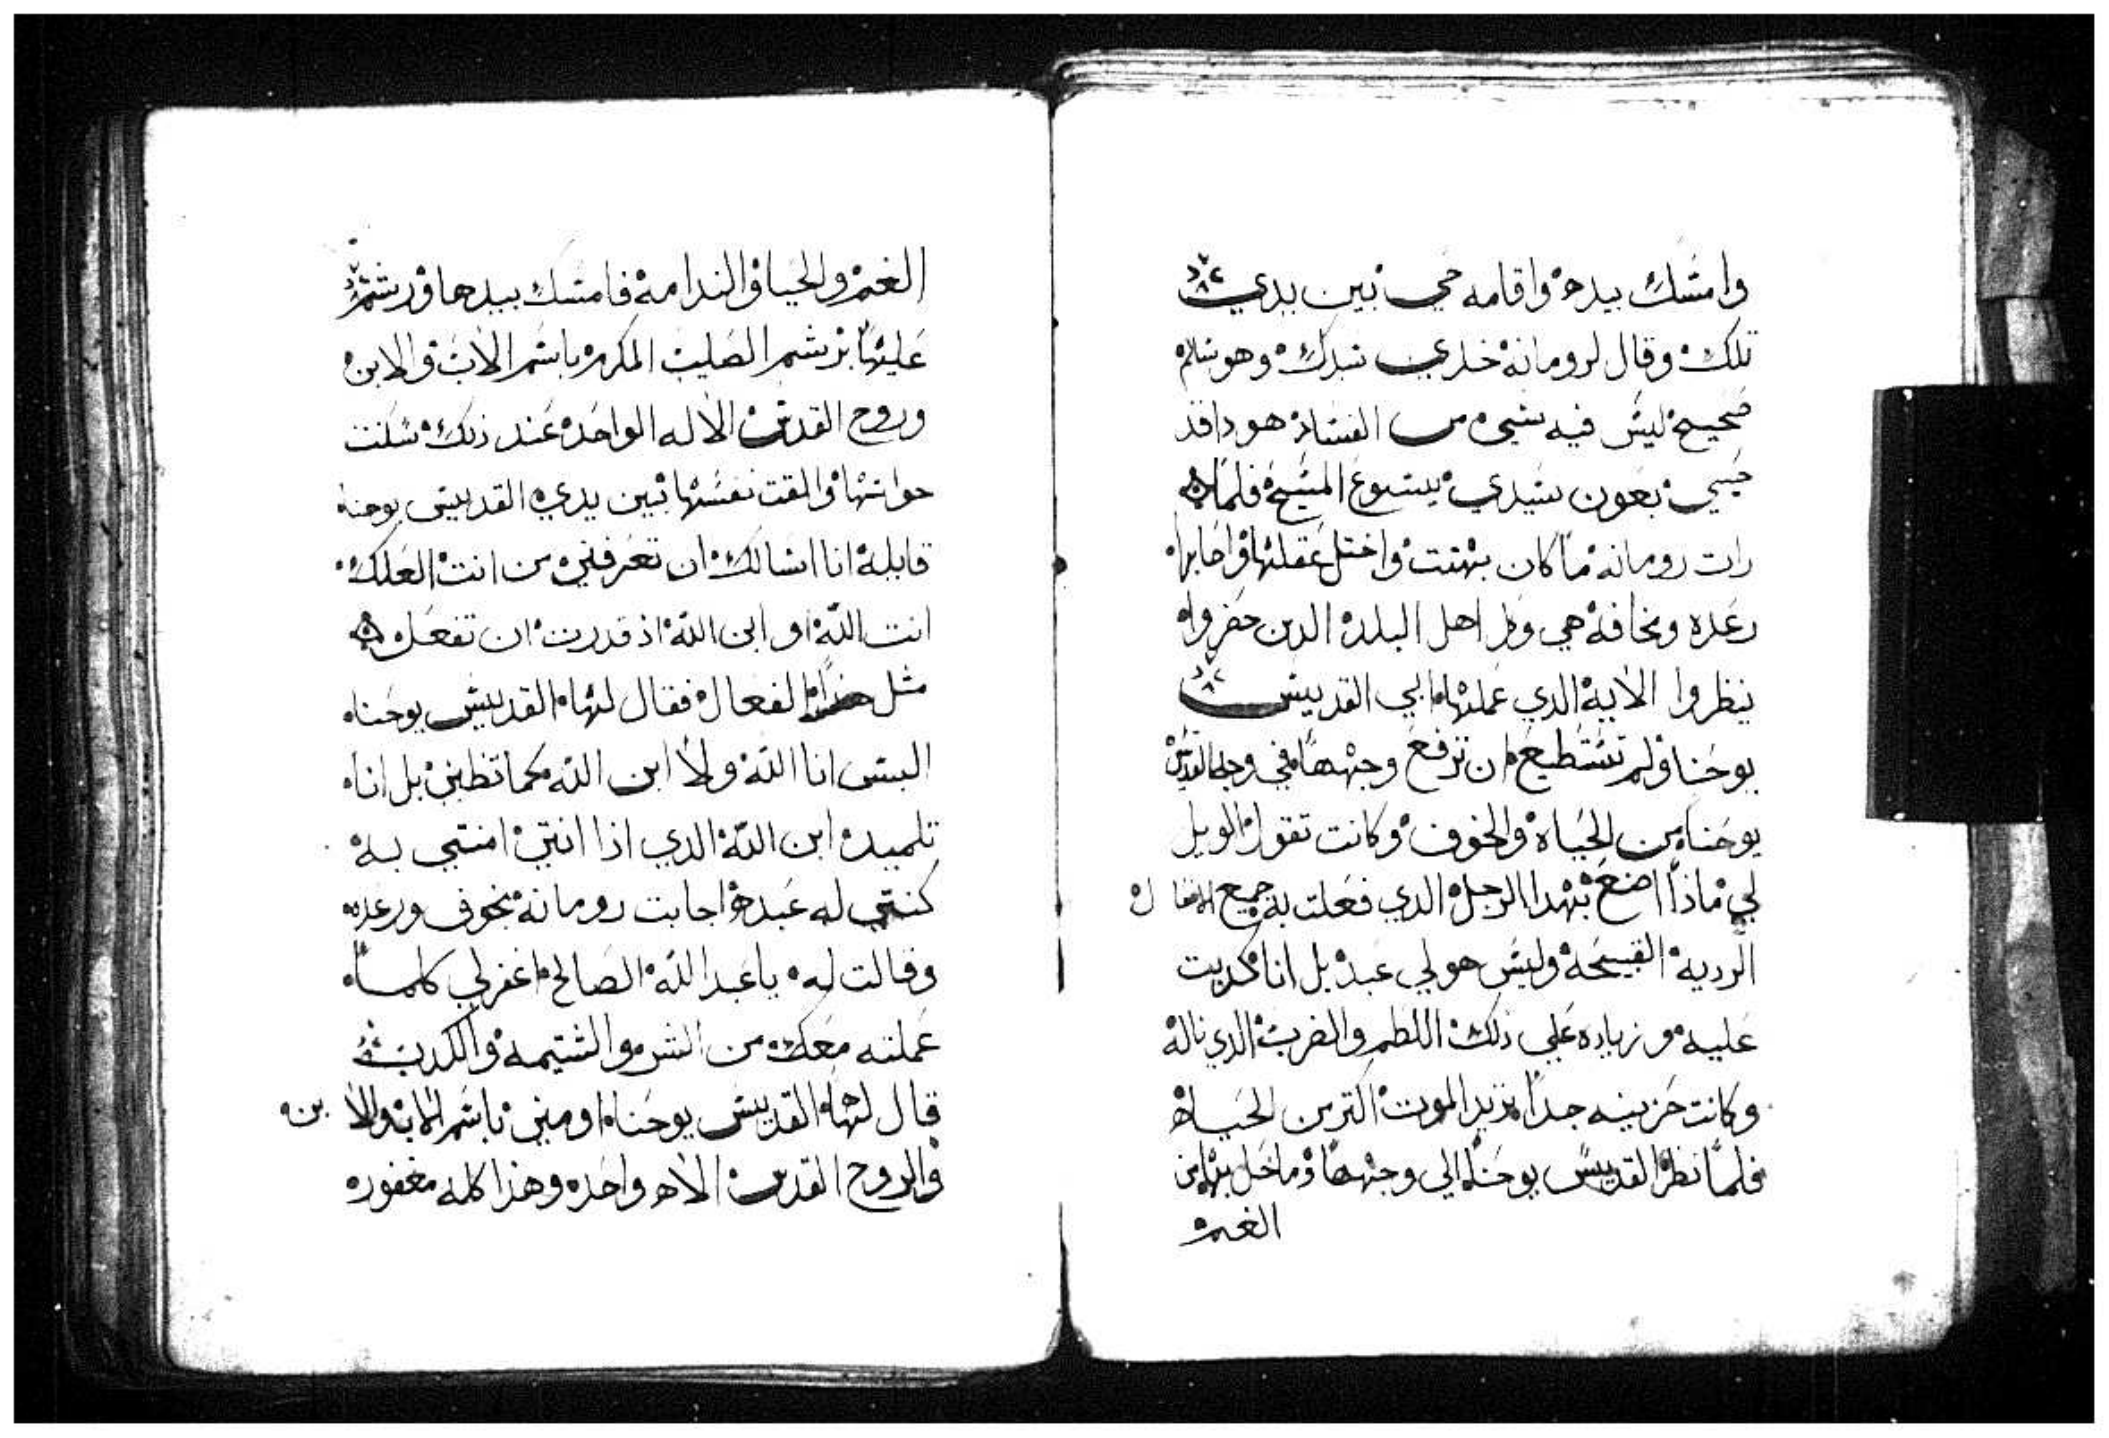 وامسك بيده واقامه حي بين يدي
تلك وقال لرومانه خدي سيدك وهو سالم
صحيح ليس فيه شي من الفساد هودا قد
حيي بعون سيدي يسوع المسيح فلما
رات رومانه ما كان بهتت واختل عقلها واخابرا
رعده ومخافه هي وكل اهل البلده الدين حضروا
ينظروا الايه الدي عملها ابي القديس
يوحنا ولم تستطيع ان ترفع وجهها في وجه القديس
يوحنا من الحياه والخوف وكانت تقول الويل
لي ماذا اصنع بهدا الرجل الدي فعلت به جميع الافعال
الرديه القبيحه وليس هو لي عبد بل انا كدبت
عليه وزياده علي ذلك اللطم والضرب الدي ناله
وكانت حزينه جدا تريد الموت اكتر من الحياه
فلما نظر القديس يوحنا الي وجهها وما حل بها من
الغم
الغم والحيا والندامه فامسك بيدها ورشم
عليها برشم الصليب المكرم باسم الاب والابن
وروح القدس الاله الواحد عند ذلك سكنت
حواسها والقت نفسها بين يدي القديس يوحنا
قايله انا اسالك ان تعرفني من انت العلك
انت الله او ابن الله اذ قدرت ان تفعل
مثل هذا الفعال فقال لها القديس يوحنا
اليس انا الله ولا ابن الله كما تظني بل انا
تلميد ابن الله الدي اذا انتي امنتي به
كنتي له عبده اجابت رومانه بخوف ورعده
وقالت له يا عبد الله الصالح اغفر لي كلما
عملته معك من الشر والشتيمه والكدب
قال لها القديس يوحنا اومني باسم الاب والابن
والروح القدس الاه واحد وهذا كله مغفور